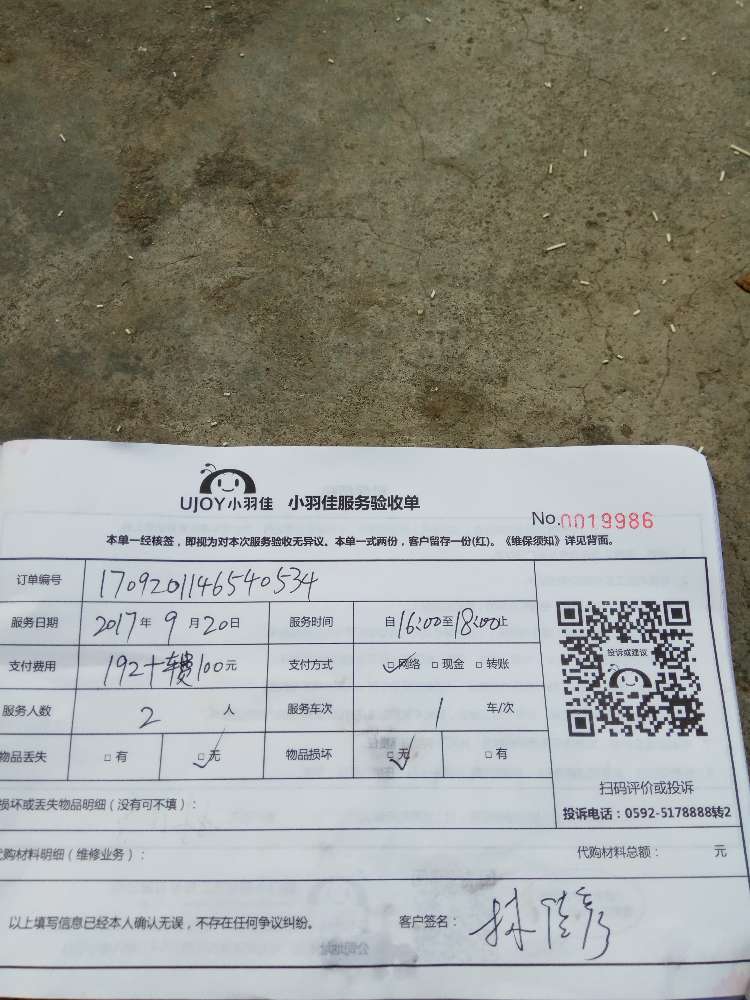 UJOY小羽佳 小羽佳服务验收单
No.0019986
本单一经核签，即视为对本次服务验收无异议。本单一式两份，客户留存一份(红)。《维保须知》详见背面。
订单编号 170920114654​0534
服务日期 2017年 9月 20日 服务时间 自16:00至18:00止
支付费用 192+车费100元 支付方式 □网络 □现金 □转账
服务人数 2 人 服务车次 1 车/次
物品丢失 □有 □无 物品损坏 □无 □有
投诉或建议
扫码评价或投诉
投诉电话：0592-5178888转2
损坏或丢失物品明细（没有可不填）：
代购材料明细（维修业务）： 代购材料总额： 元
以上填写信息已经本人确认无误，不存在任何争议纠纷。 客户签名：